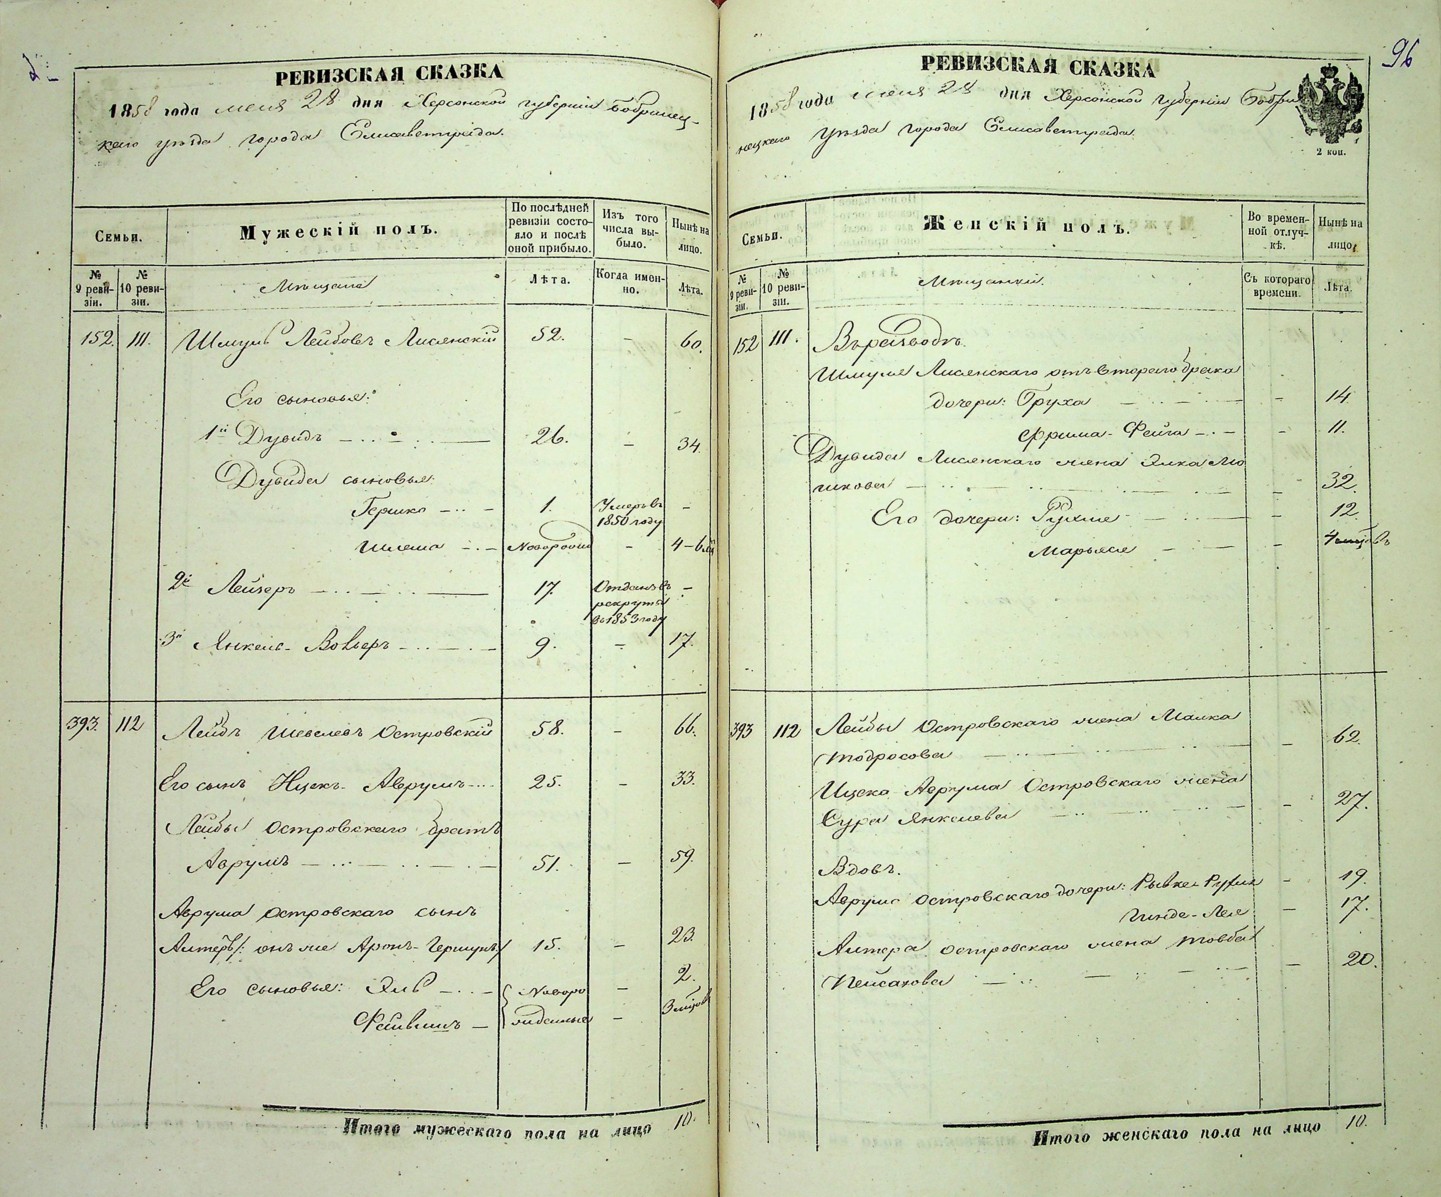 РЕВИЗСКАЯ СКАЗКА
1858 года мая 28 дня Херсонской губернии Бобринец-
каго уѣзда города Елисаветграда.
Семьи.
Мужескій полъ.
По послѣдней ревизіи состо-яло и послѣ оной прибыло.
Изъ того числа вы-было.
Нынѣ на лицо.
№ 9 реви-зіи.
№ 10 реви-зіи.
Мѣщане
Лѣта.
Когда имен-но.
Лѣта.
152. 111. Шмуль Лейбовъ Лисянскій 52. - 60.
Его сыновья:
1й Дувидъ 26. - 34.
Дувида сыновья:
Гершко 1. Умеръ въ 1850 году -
Шлема Новорожд - 4-6м
2й Лейзеръ 17. Отданъ въ рекруты въ 1853 году -
3й Янкель-Вольеръ 9. - 17.
393. 112 Лейбъ Шевелевъ Островскій 58. - 66.
Его сынъ Ицекъ-Аврумъ 25. - 33.
Лейбы Островскаго братъ
Аврумъ 51. - 59.
Аврума Островскаго сынъ
Алтеръ /: онъ же Аронъ-Гершунъ:/ 15. - 23.
Его сыновья: Эль { Новоро - 2.
Файвишъ { жденные - 3 мѣсяц
Итого мужескаго пола на лицо 10.
96
РЕВИЗСКАЯ СКАЗКА
1858 года мая 28 дня Херсонской губернии Бобри
нецкаго уѣзда города Елисаветграда.
2 коп.
Семьи.
Женскій полъ.
Во времен-ной отлуч-кѣ.
Нынѣ на лицо.
№ 9 реви-зіи.
№ 10 реви-зіи.
Мѣщанки.
Съ котораго времени.
Лѣта.
152 111. Въ разводѣ.
Шмуля Лисянскаго отъ втораго брака
дочери: Груха - 14
Фрима-Фейга - 11.
Дувида Лисянскаго жена Элка Мо
шкова - 32.
Его дочери: Рухля - 12
Марьяся - 4 мѣсяцевъ
393 112 Лейбы Островскаго жена Малка
Тодросова - 62.
Ицека-Аврума Островскаго жена
Сура Янкелева - 27.
Вдовъ.
Аврума Островскаго дочери: Рывке-Рухля - 19.
Гинде-Лея - 17.
Алтера Островскаго жена Товба
Пейсахова - 20.
Итого женскаго пола на лицо 10.